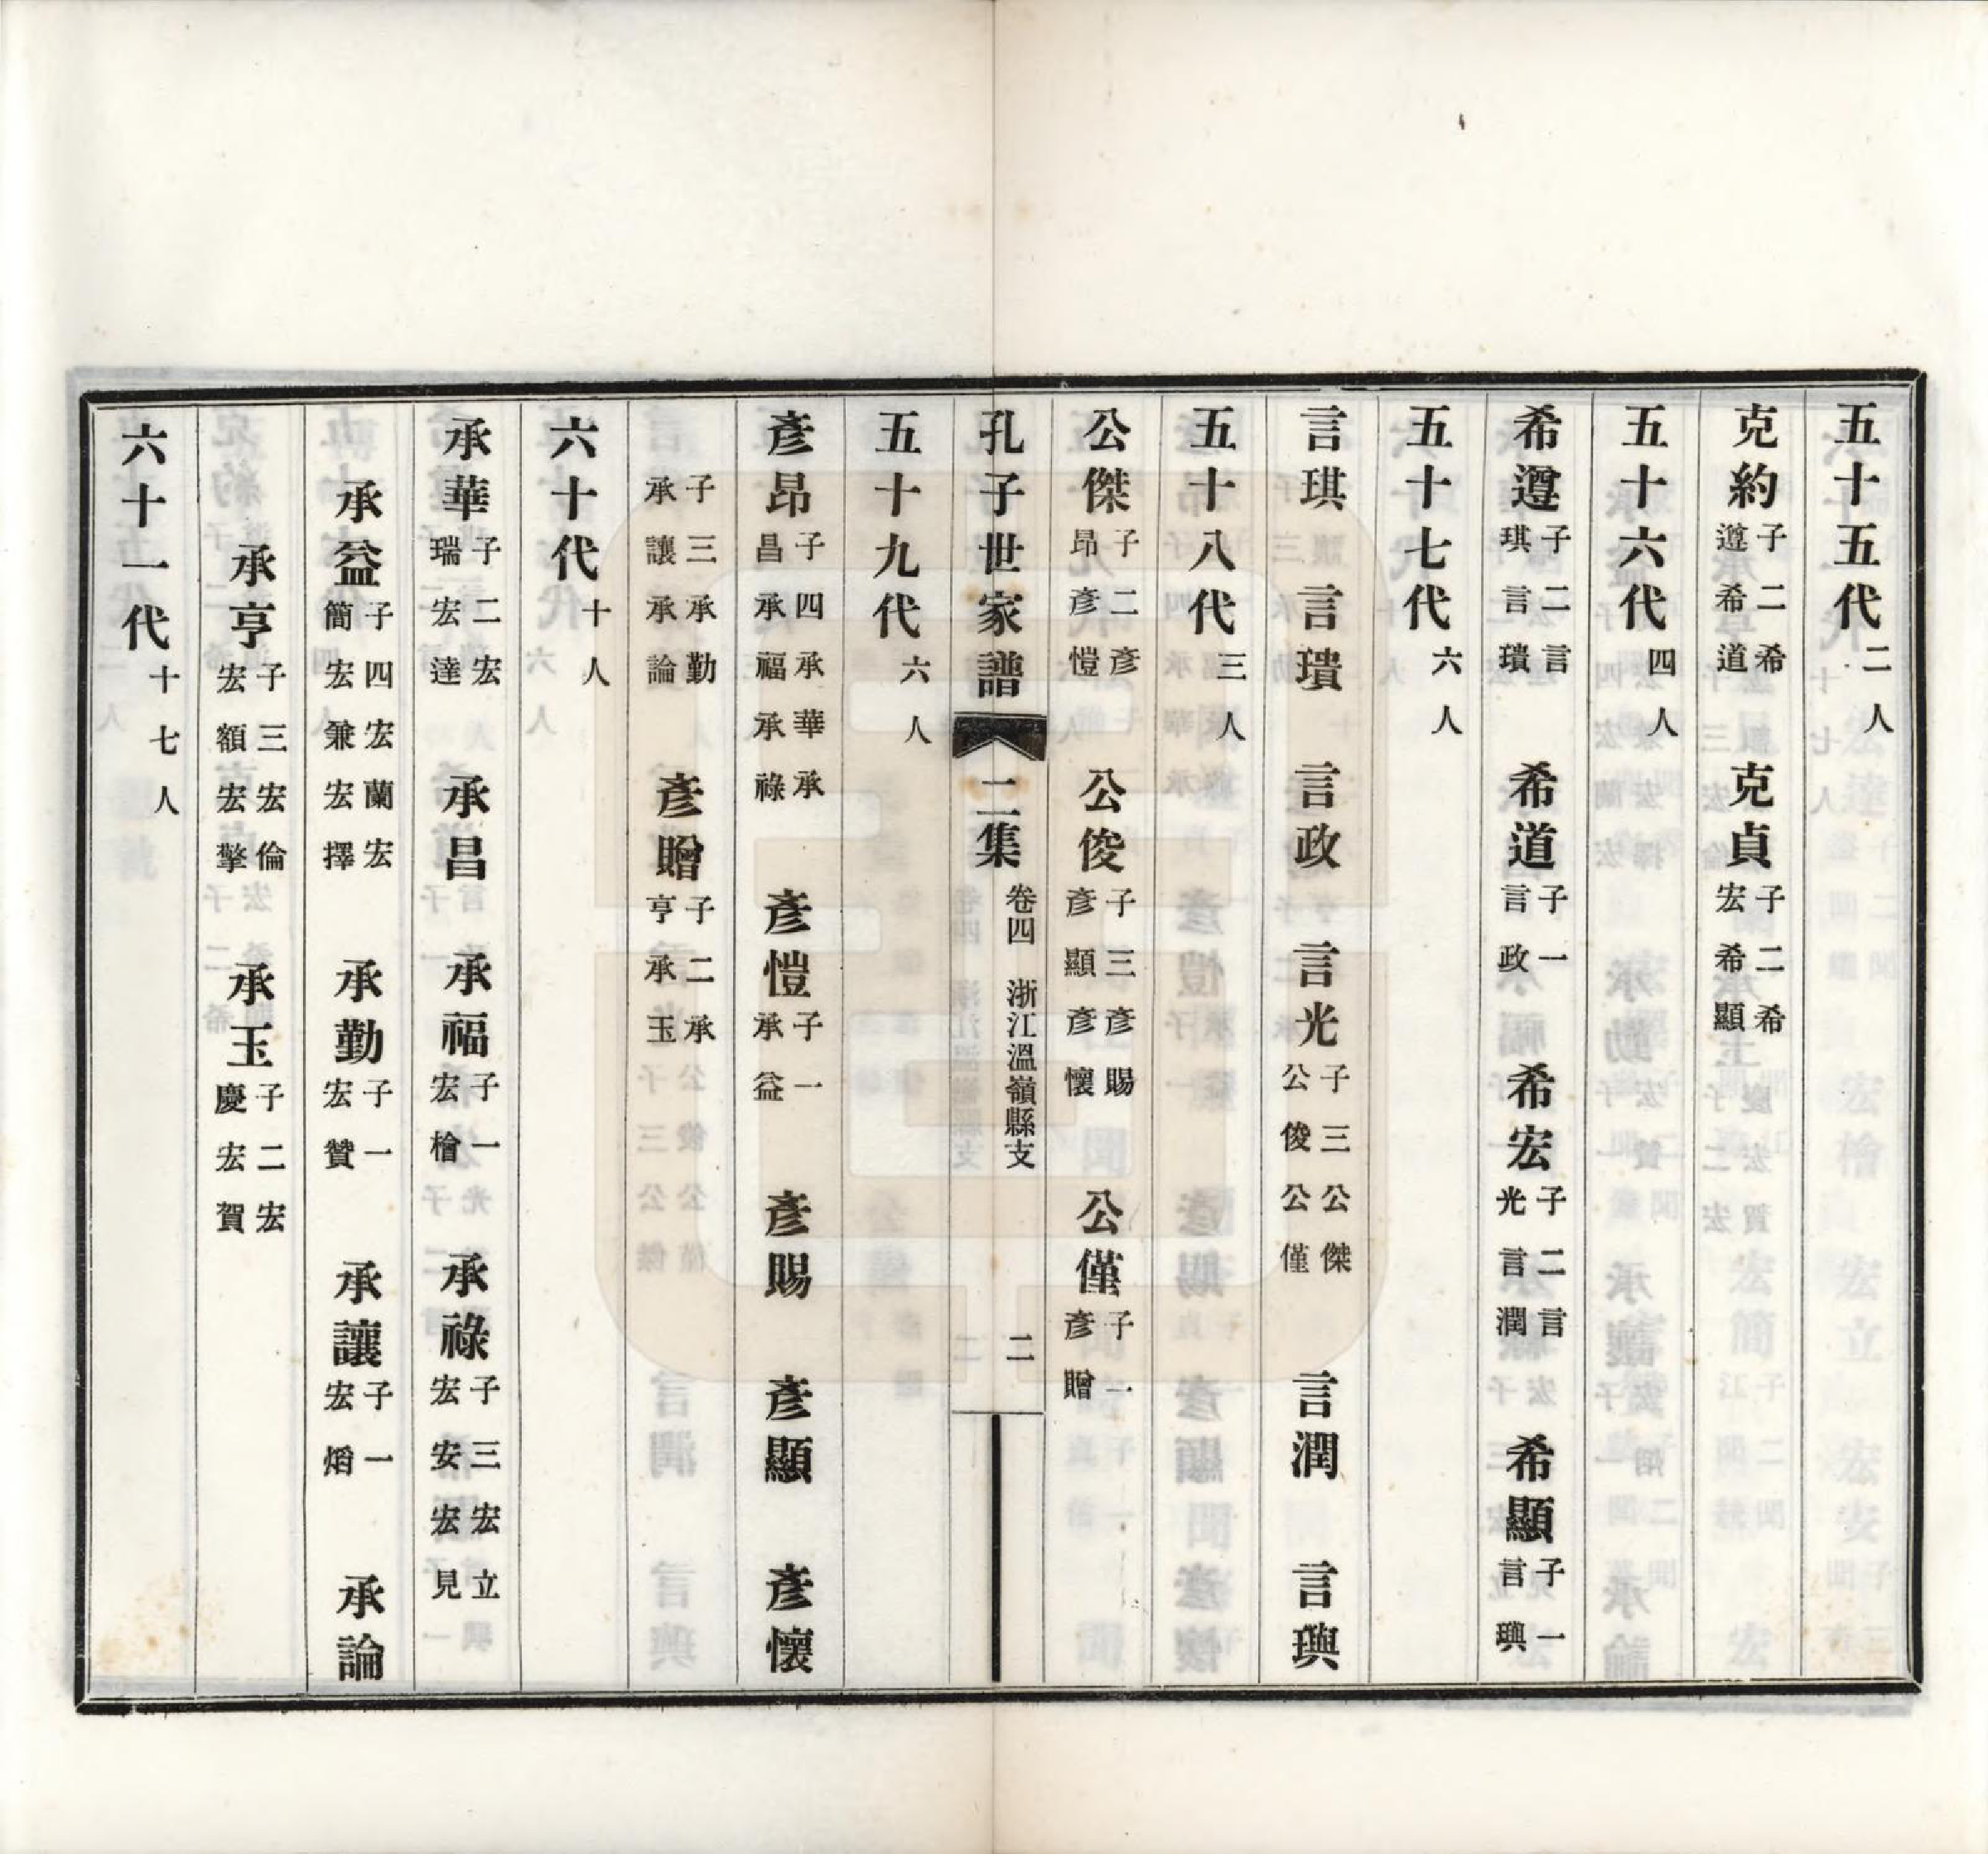 五十五代二人
克約子二希遵希道　克貞子二希宏希顯
五十六代四人
希遵子二言琪言璝　希道子一言政　希宏子二言光言潤　希顯子一言璵
五十七代六人
言琪　言璝　言政　言光子三公傑公俊公僅　言潤　言璵
五十八代三人
公傑子二彥昂彥愷　公俊子三彥賜彥顯彥懷　公僅子一彥贈
孔子世家譜　二集　卷四　浙江溫嶺縣支　二
五十九代六人
彥昂子四承華承昌承福承祿　彥愷子一承益　彥賜　彥顯　彥懷
子三承勤承讓承論　彥贈子二承亨承玉
六十代十人
承華子二宏瑞宏達　承昌　承福子一宏檜　承祿子三宏立宏安宏見
承益子四宏蘭宏簡宏兼宏擇　承勤子一宏贊　承讓子一宏熖　承論
承亨子三宏倫宏額宏擎　承玉子二宏慶宏賀
六十一代十七人